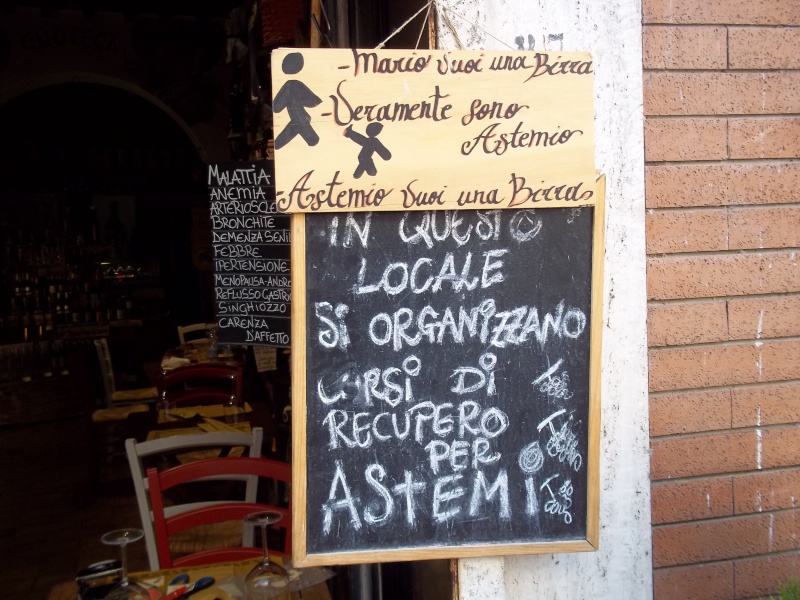 ENOTECA
-Mario Vuoi una Birra
-Veramente sono
Astemio
-Astemio Vuoi una Birra
IN QUESTO
LOCALE
Si ORGANiZZANO
CORSi Di
RECUPERO
PER
ASTEMi
MALATTIA
ANEMIA
ARTERIOSCLE
BRONCHITE
DEMENZA SENIL
FEBBRE
IPERTENSIONE
MENOPAUSA-ANDRO
REFLUSSO GASTRI
SINGHIOZZO
CARENZA
D'AFFETTO